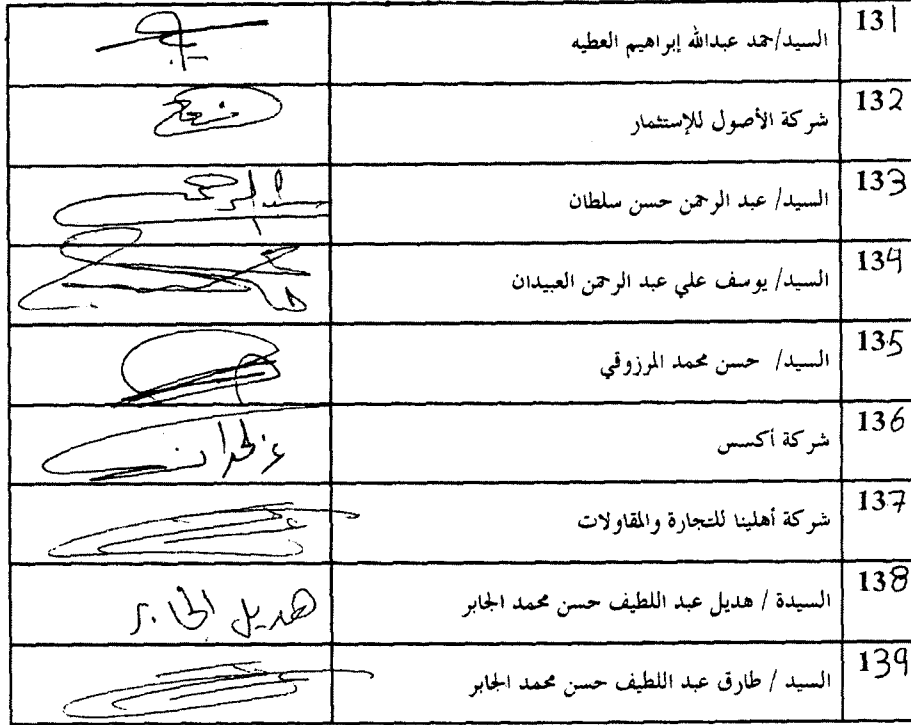 131 السيد/حمد عبدالله إبراهيم العطيه
132 شركة الأصول للإستثمار
133 السيد/ عبد الرحمن حسن سلطان
134 السيد/ يوسف علي عبد الرحمن العبيدان
135 السيد/ حسن محمد المرزوقي
136 شركة أكسس
137 شركة أهلينا للتجارة والمقاولات
138 السيدة / هديل عبد اللطيف حسن محمد الجابر هديل الجابر
139 السيد / طارق عبد اللطيف حسن محمد الجابر